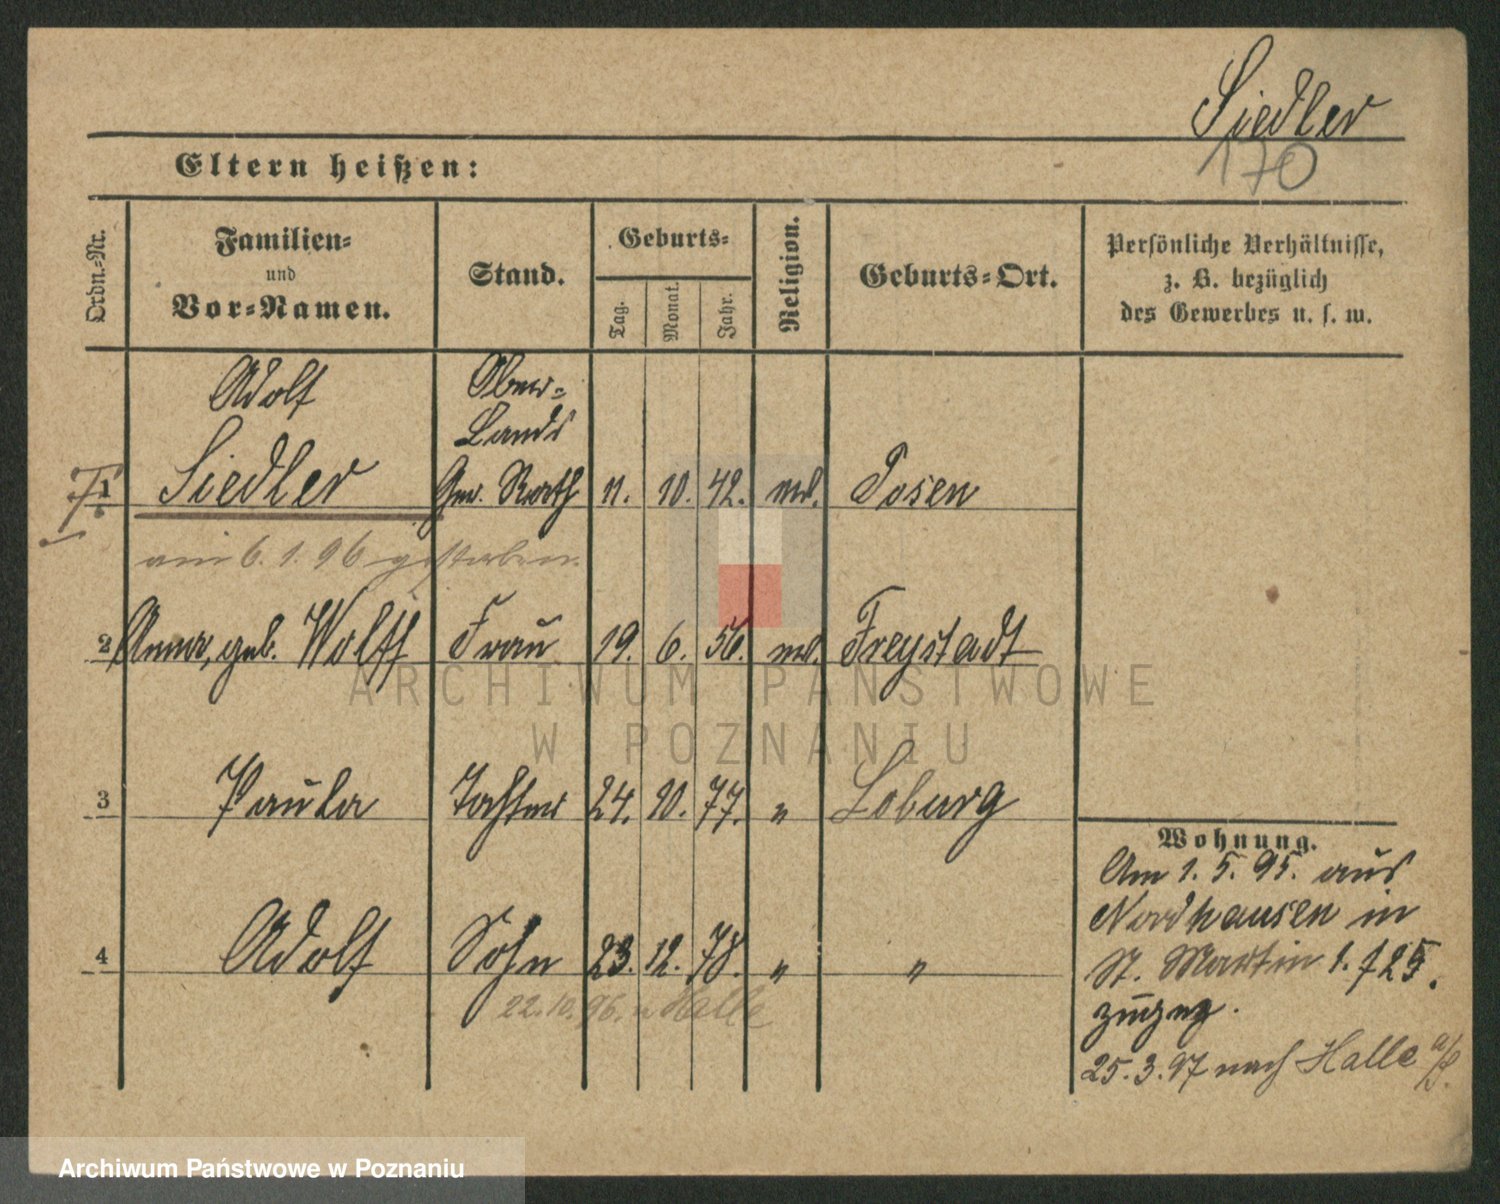 Siedler
170
Eltern heißen:
Ordn.=Nr.
Familien=
und
Vor=Namen.
Stand.
Geburts=
Tag.
Monat.
Jahr.
Religion.
Geburts=Ort.
Persönliche Verhältnisse,
z. B. bezüglich
des Gewerbes u. s. w.
Adolf
Siedler
Ober=
Lands
Ger. Rath
11. 10. 42.
Posen
1
am 6. 1. 96 gestorben.
2 Anna, geb. Wolff Frau 19. 6. 56. Freystadt
3 Paula Tochter 24. 10. 77. " Loburg
4 Adolf Sohn 23. 12. 78. " "
22. 10. 96. n Halle
Wohnung.
Am 1. 5. 95. aus
Nordhausen in
St. Martin
zugez.
25. 3. 97 nach Halle a/S.
ARCHIWUM PAŃSTWOWE
W POZNANIU
Archiwum Państwowe w Poznaniu